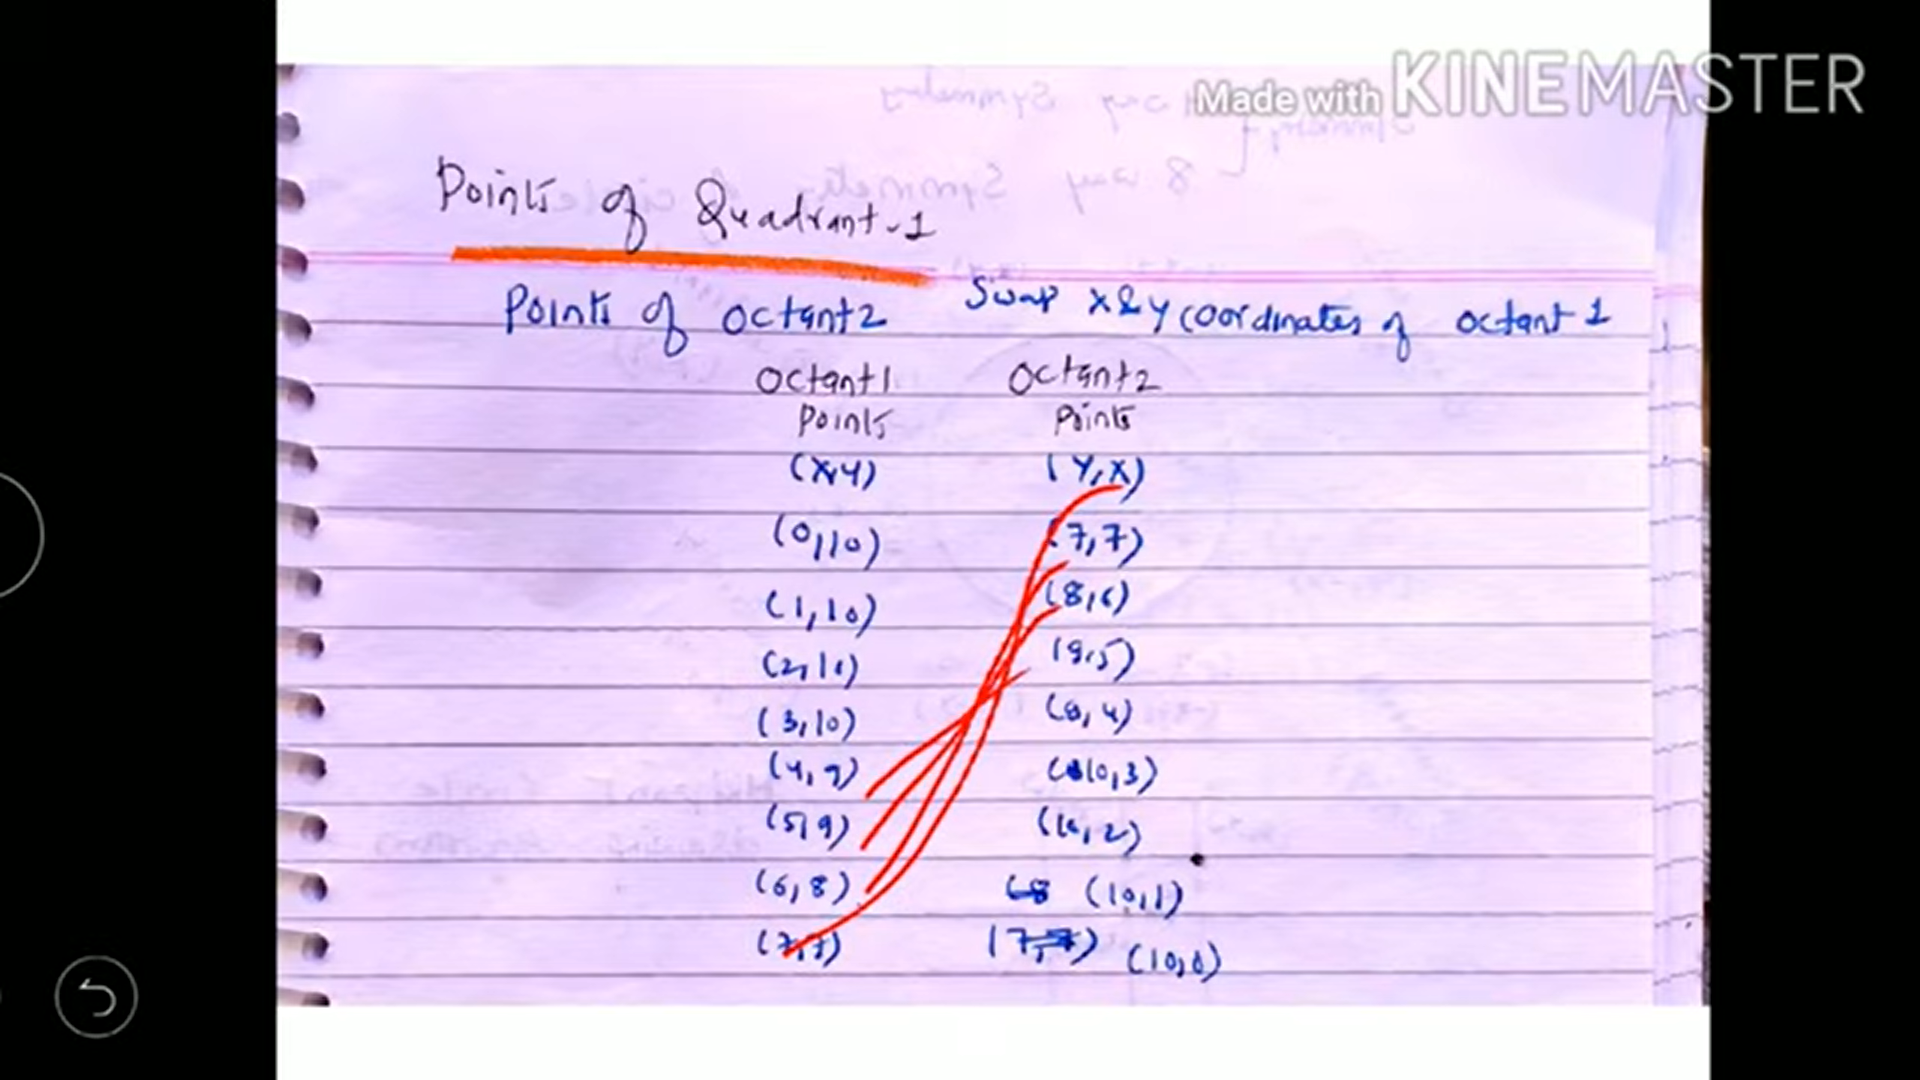 Made with KINEMASTER
Points of Quadrant-1
Points of octant2 Swap x&y coordinates of octant 1
Octant1 Octant2
Points Points
(x,y) (y,x)
(0,10) (7,7)
(1,10) (8,6)
(2,10) (9,5)
(3,10) (9,4)
(4,9) (10,3)
(5,9) (10,2)
(6,8) (10,1)
(7,7) (7,7) (10,0)